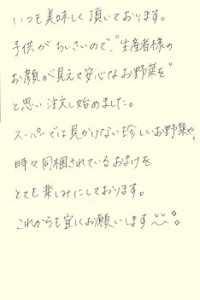 いつも美味しく頂いております。
子供がちいさいので、"生産者様の
お顔が見えて安心なお野菜を"
と思い注文し始めました。
スーパーでは見かけない珍しいお野菜や、
時々同梱されているおまけを
とても楽しみにしております。
これからも宜しくお願いします